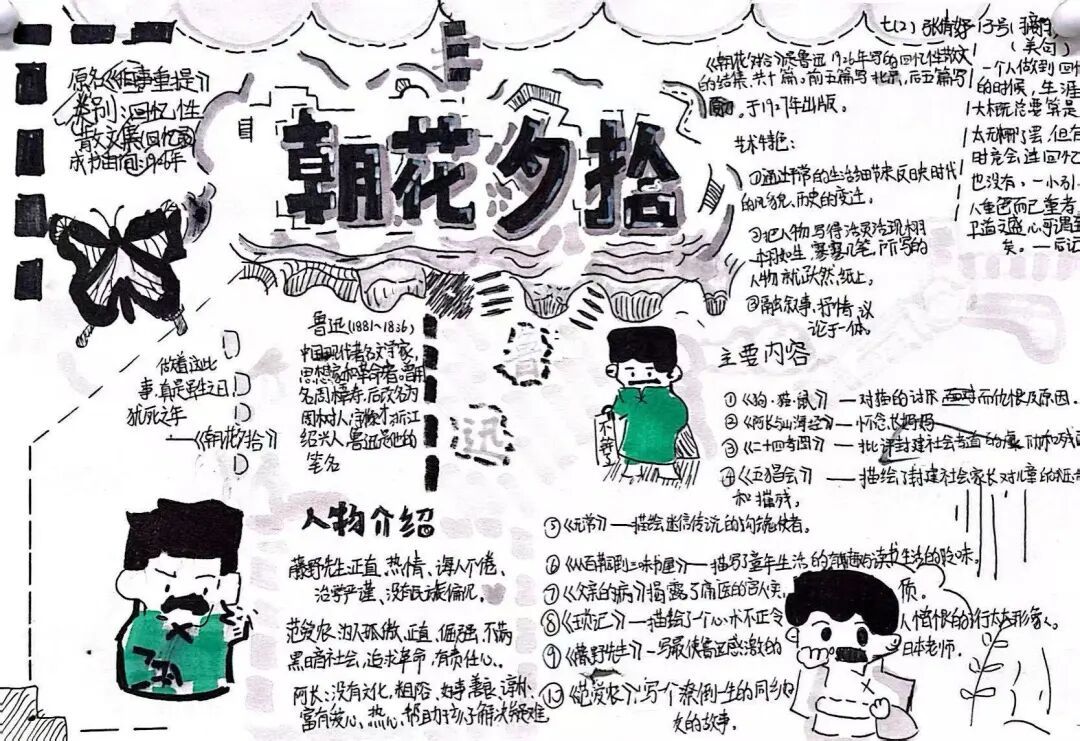 七(2) 张倩妤 13号
原名《旧事重提》
类别:回忆性
散文集(回忆录)
成书时间:1926年
朝花夕拾
《朝花夕拾》是鲁迅1926年写的回忆性散文
的结集,共十篇。前五篇写北京,后五篇写
于1927年出版。
艺术特色:
①通过平常的生活细节来反映时代
的风貌,历史的变迁。
②把人物写得活灵活现,栩
栩如生,寥寥几笔,所写的
人物就跃然纸上。
③融叙事、抒情、议
论于一体。
(美句)
一个人做到
的时候,生涯
大概总要算是
太无聊了罢,但有
时竟会连回忆
也没有。
做着这些
事,真是虽生之日,
犹死之年
——《朝花夕拾》
鲁迅(1881~1836)
中国现代著名文学家,
思想家和革命者。曾用
名周樟寿,后改名为
周树人,字豫才,浙江
绍兴人,鲁迅是他的
笔名
鲁
迅
不
等
主要内容
①《狗·猫·鼠》——对猫的讨厌 而仇恨反原因。
②《阿长与山海经》——怀念长妈妈
③《二十四孝图》——批评封建社会孝道的虚
④《五猖会》——描绘了封建社会家长对儿童的
和摧残。
⑤《无常》——描绘迷信传说的勾魂使者。
⑥《从百草园到三味书屋》——描写了童年生活的情趣与读书生活的
⑦《父亲的病》揭露了庸医的害人实 质。
⑧《琐记》——描绘了一个心术不正令 人憎恨的行太太形象。
⑨《藤野先生》—写最使鲁迅感激的 日本老师。
⑩《范爱农》:写一个潦倒一生的同乡
友的故事。
人物介绍
藤野先生:正直、热情、诲人不倦、
治学严谨、没有民族偏见。
范爱农:为人孤傲、正直、倔强、不满
黑暗社会,追求革命,有责任心。
阿长:没有文化,粗俗、好事善良、
富有爱心、热心、帮助孩子解决疑难